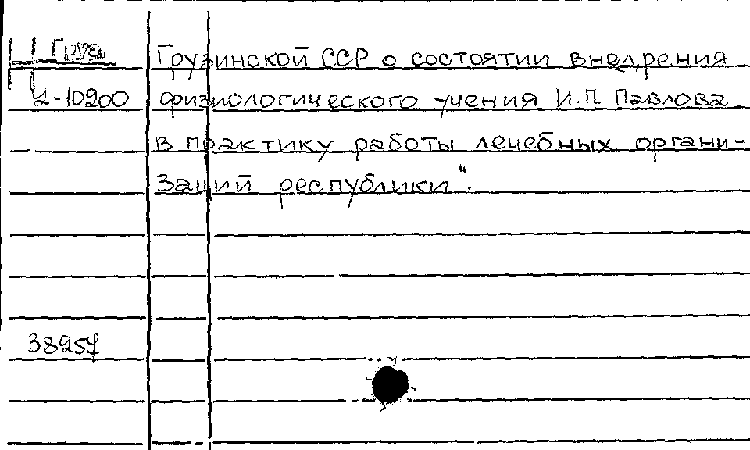 Грузинской ССР о состоянии внедрения
И-10200 физиологического учения И.П. Павлова
в практику работы лечебных органи-
заций республики".
38257